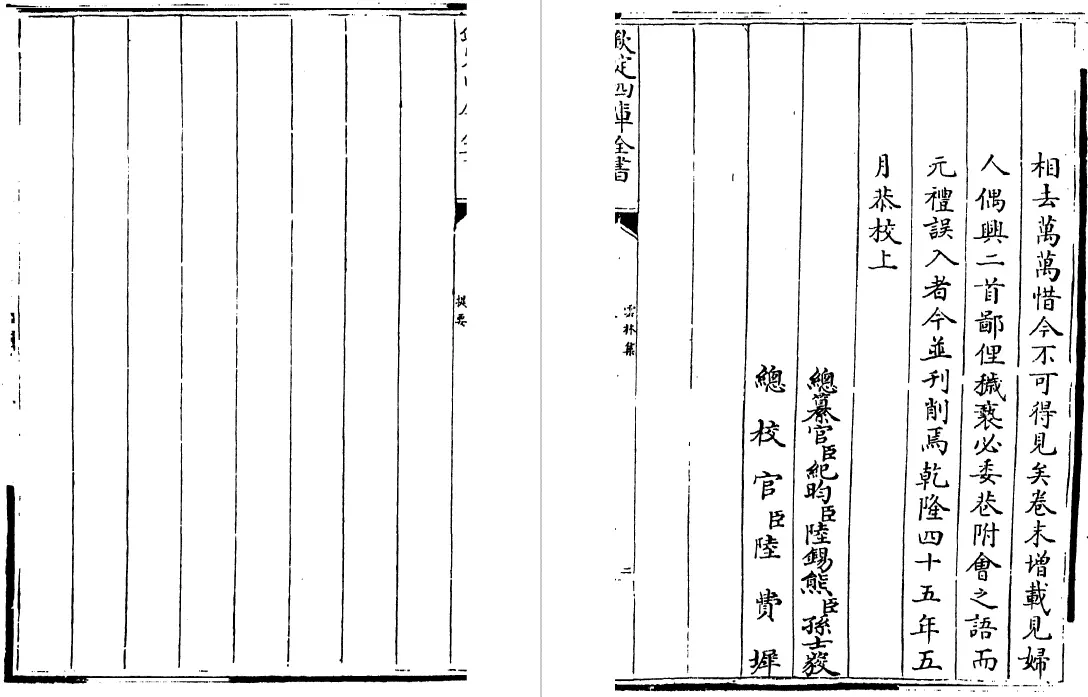 相去萬萬惜今不可得見矣卷末增載見婦
人偶興二首鄙俚穢褻必委巷附會之語而
元禮誤入者今並刊削焉乾隆四十五年五
月恭校上
總纂官臣紀昀臣陸錫熊臣孫士毅
總校官臣陸費墀
欽定四庫全書
雲林集
二
提要